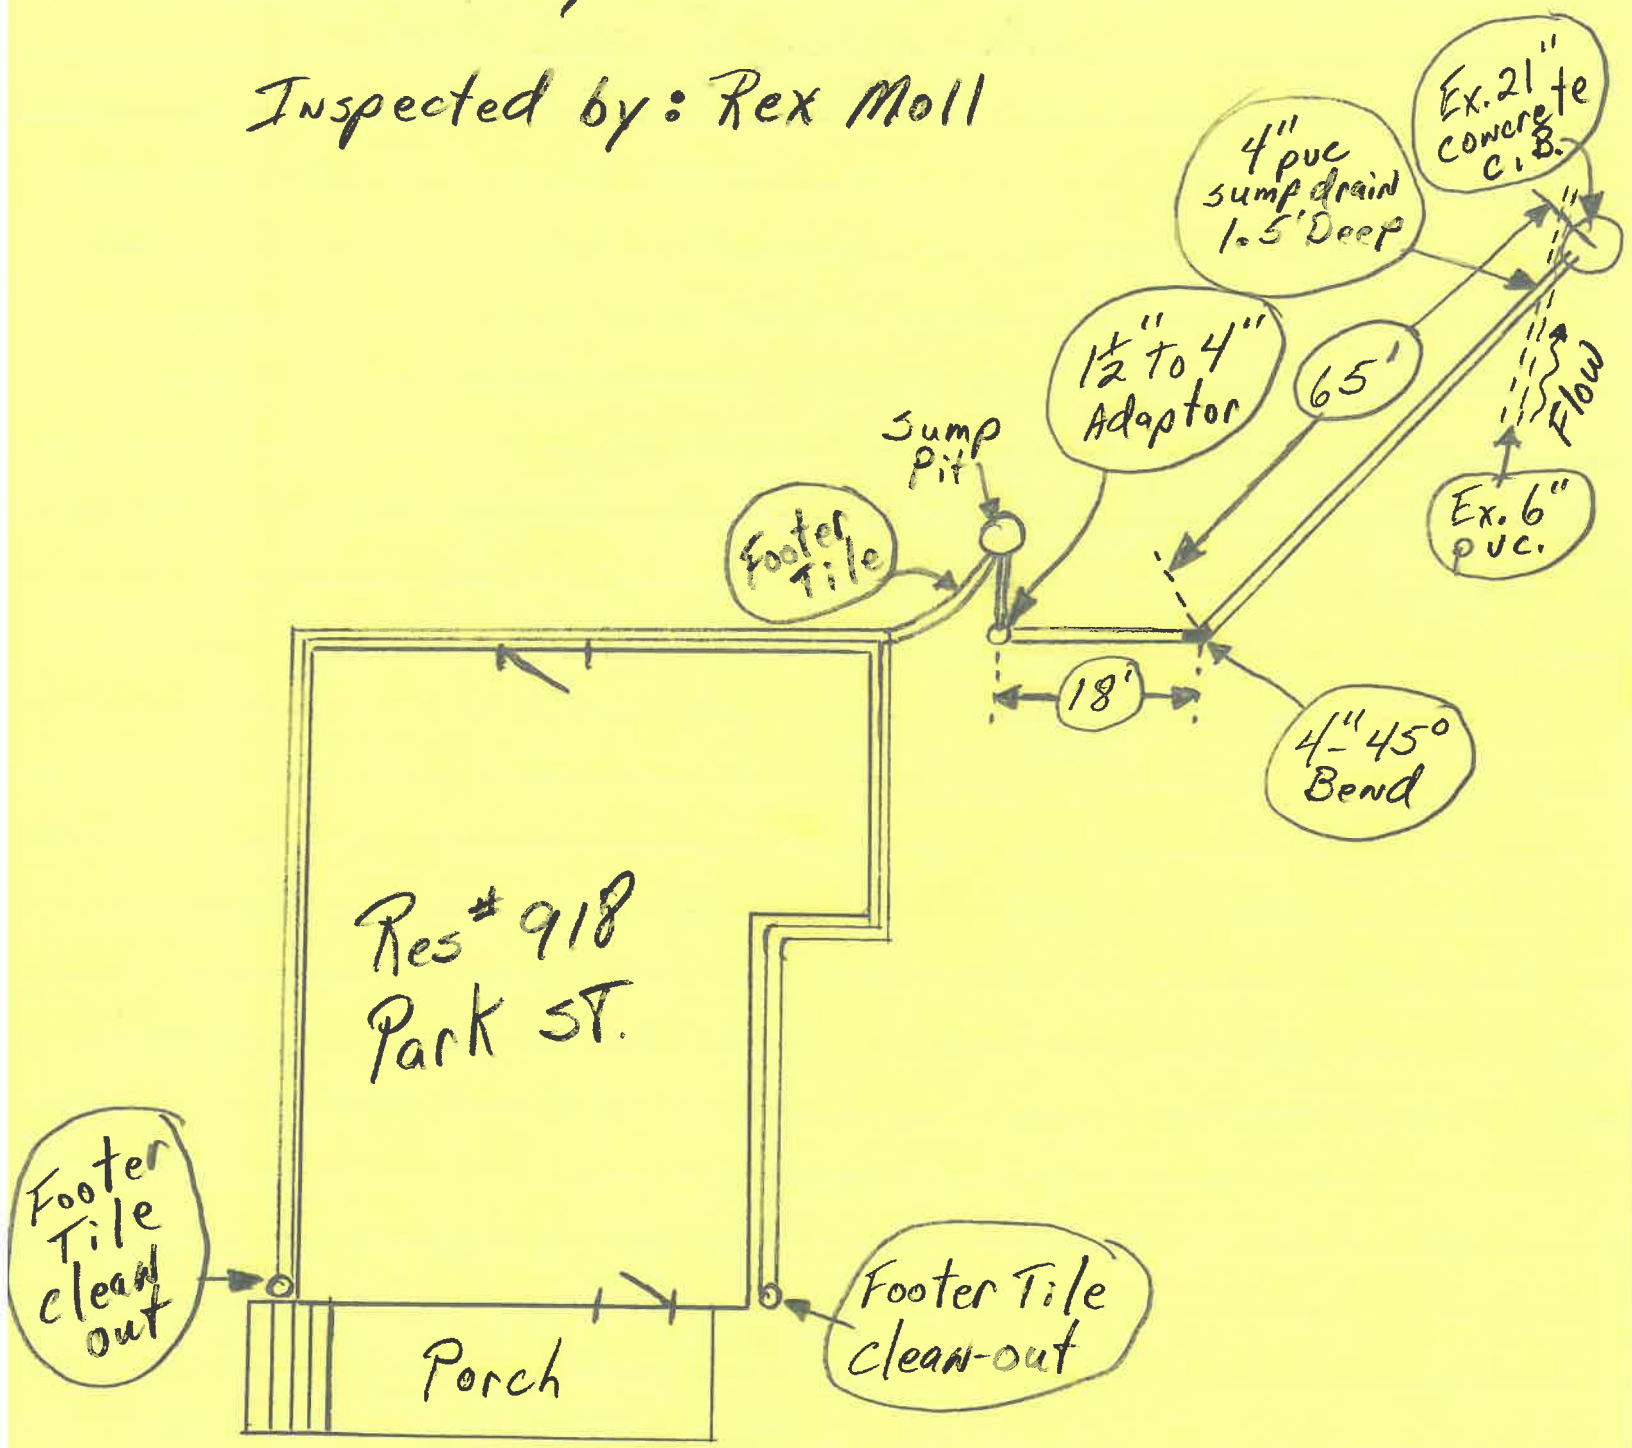 Inspected by: Rex Moll
Ex. 21"
concrete
C.B.
4"
pvc
sump drain
1.5' Deep
1½" To 4"
Adaptor
65'
Flow
Sump
Pit
Ex. 6"
pvc.
Footer
Tile
18'
4"-45°
Bend
Res # 918
Park ST.
Footer
Tile
clean
out
Footer Tile
clean-out
Porch